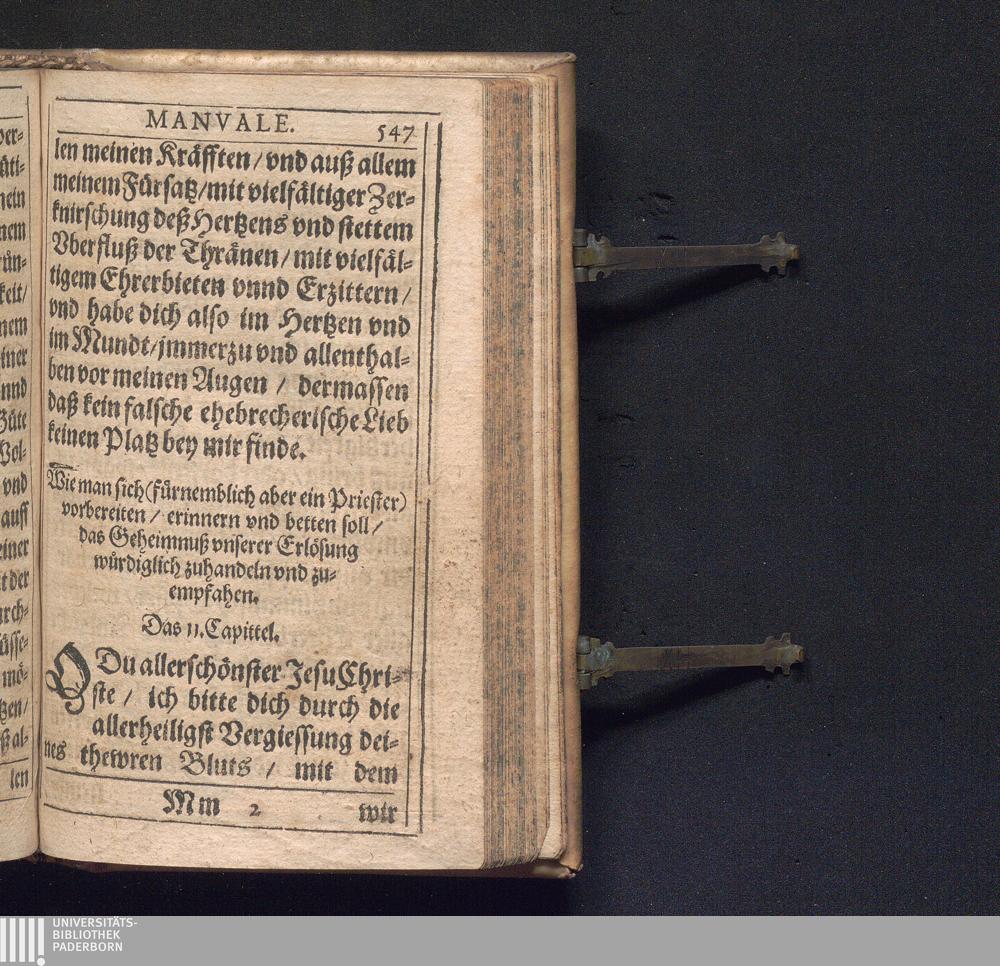 MANVALE. 547
len meinen Kräfften / vnd auß allem
meinem Fürsatz / mit vielfältiger Zer-
knirschung deß Hertzens vnd stettem
Vberfluß der Thränen / mit vielfäl-
tigem Ehrerbieten vnnd Erzittern /
vnd habe dich also im Hertzen vnd
im Mundt / jmmerzu vnd allenthal-
ben vor meinen Augen / dermassen
daß kein falsche ehebrecherische Lieb
keinen Platz bey mir finde.
Wie man sich (fürnemblich aber ein Priester)
vorbereiten / erinnern vnd betten soll /
das Geheimnuß vnserer Erlösung
würdiglich zuhandeln vnd zu-
empfahen.
Das 11. Capittel.
O Du allerschönster Jesu Chri-
ste / ich bitte dich durch die
allerheiligst Vergiessung dei-
nes thewren Bluts / mit dem
Mm 2 wir
len
UNIVERSITÄTS-
BIBLIOTHEK
PADERBORN